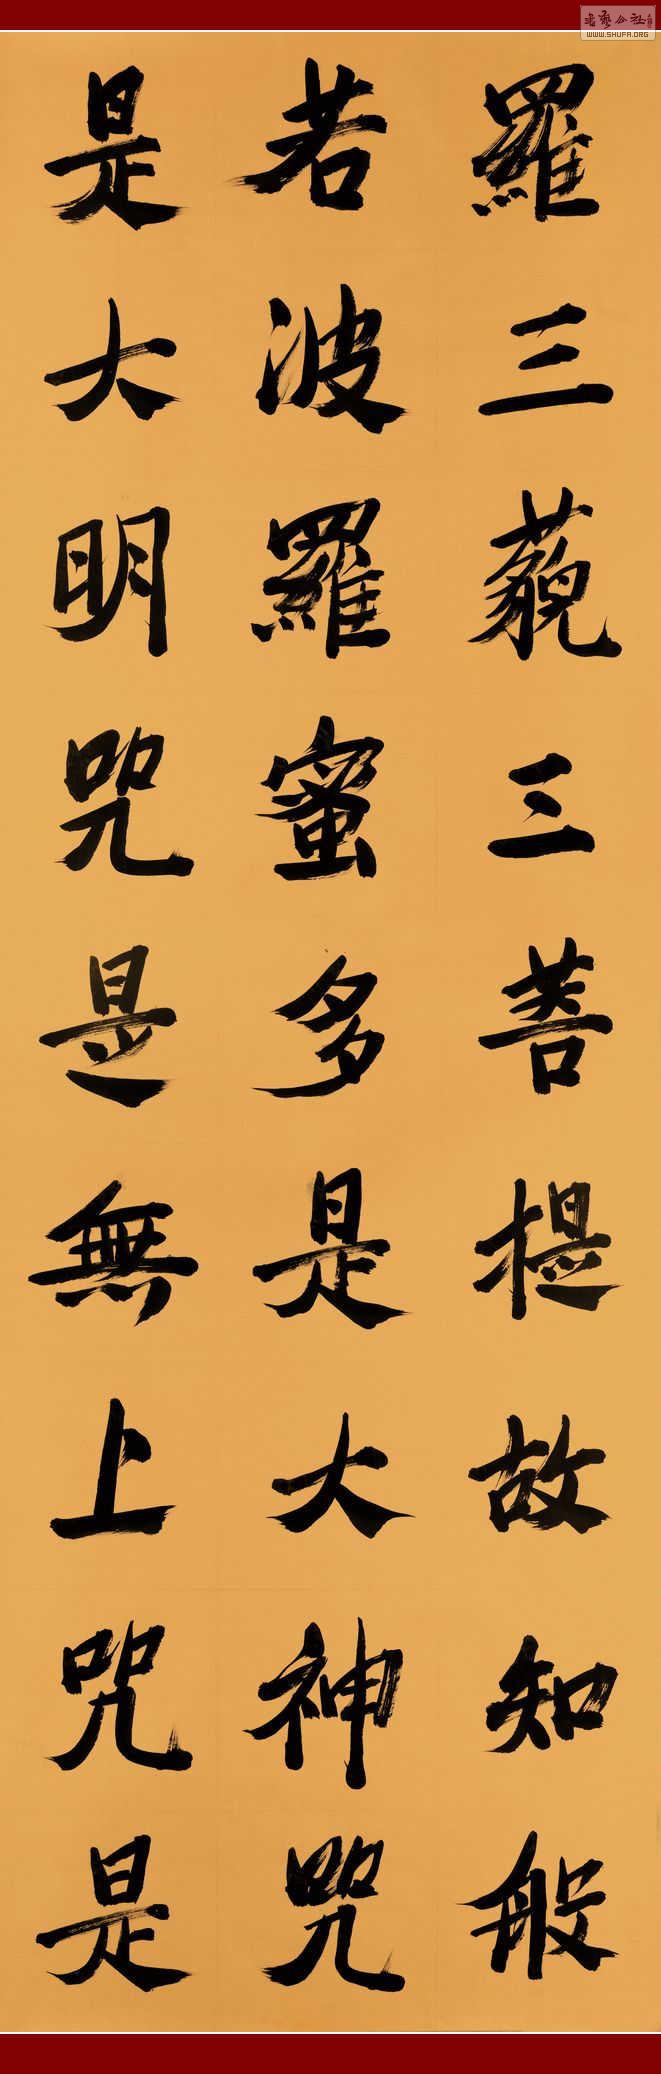 羅三藐三菩提故知般
若波羅蜜多是大神咒
是大明咒是無上咒是
書藝公社
WWW.SHUFA.ORG